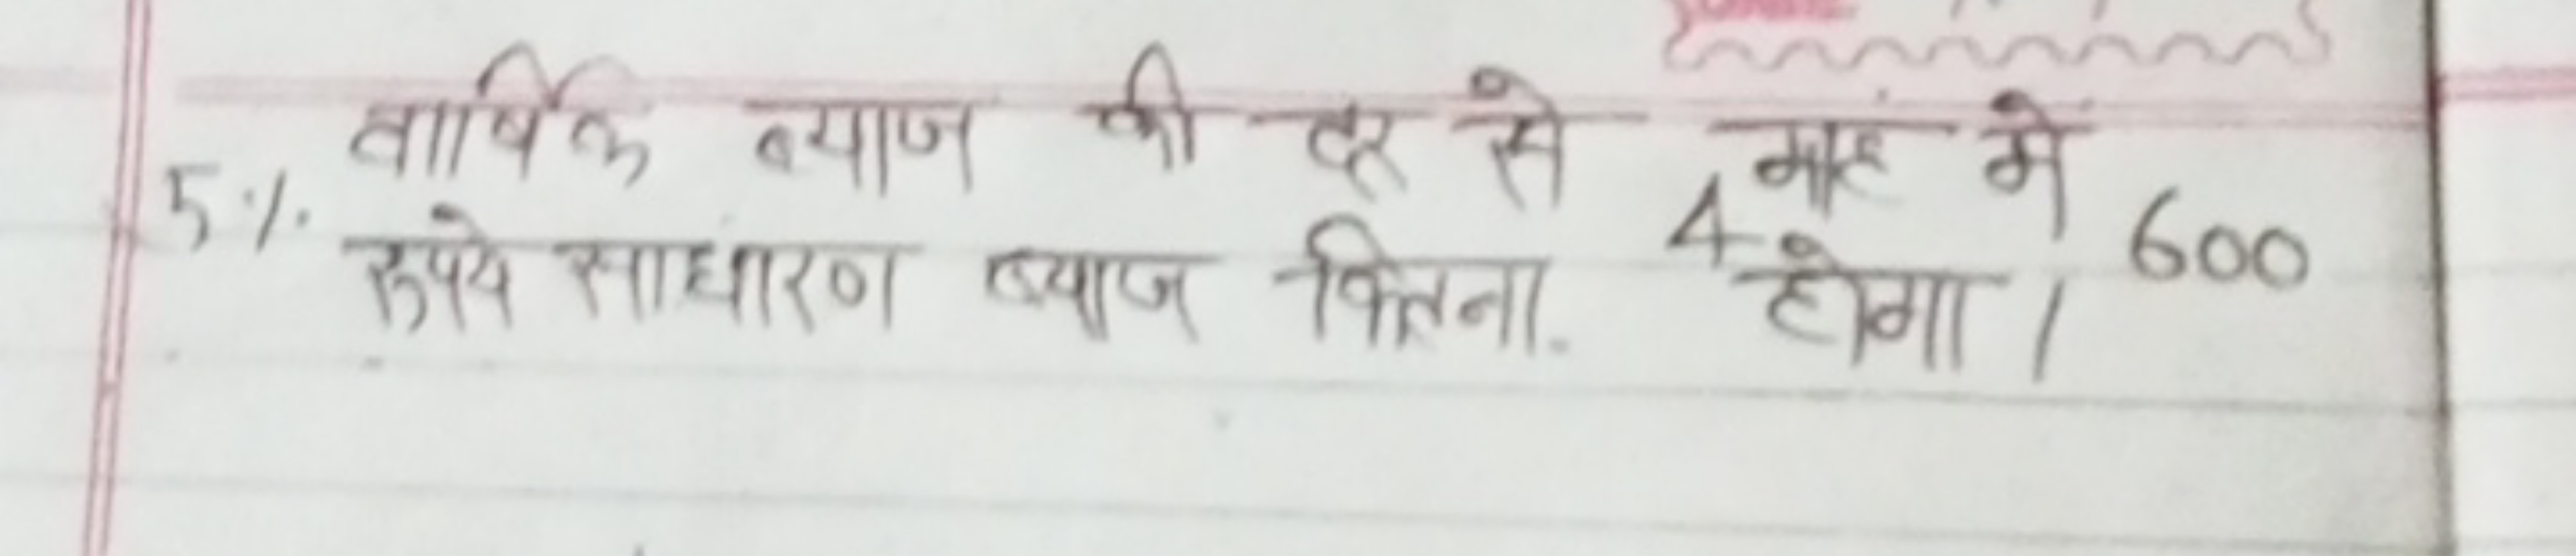 5% वार्षिक ब्याज की दर से 4 माह में 600
रुपये साधारण ब्याज कितना होगा।